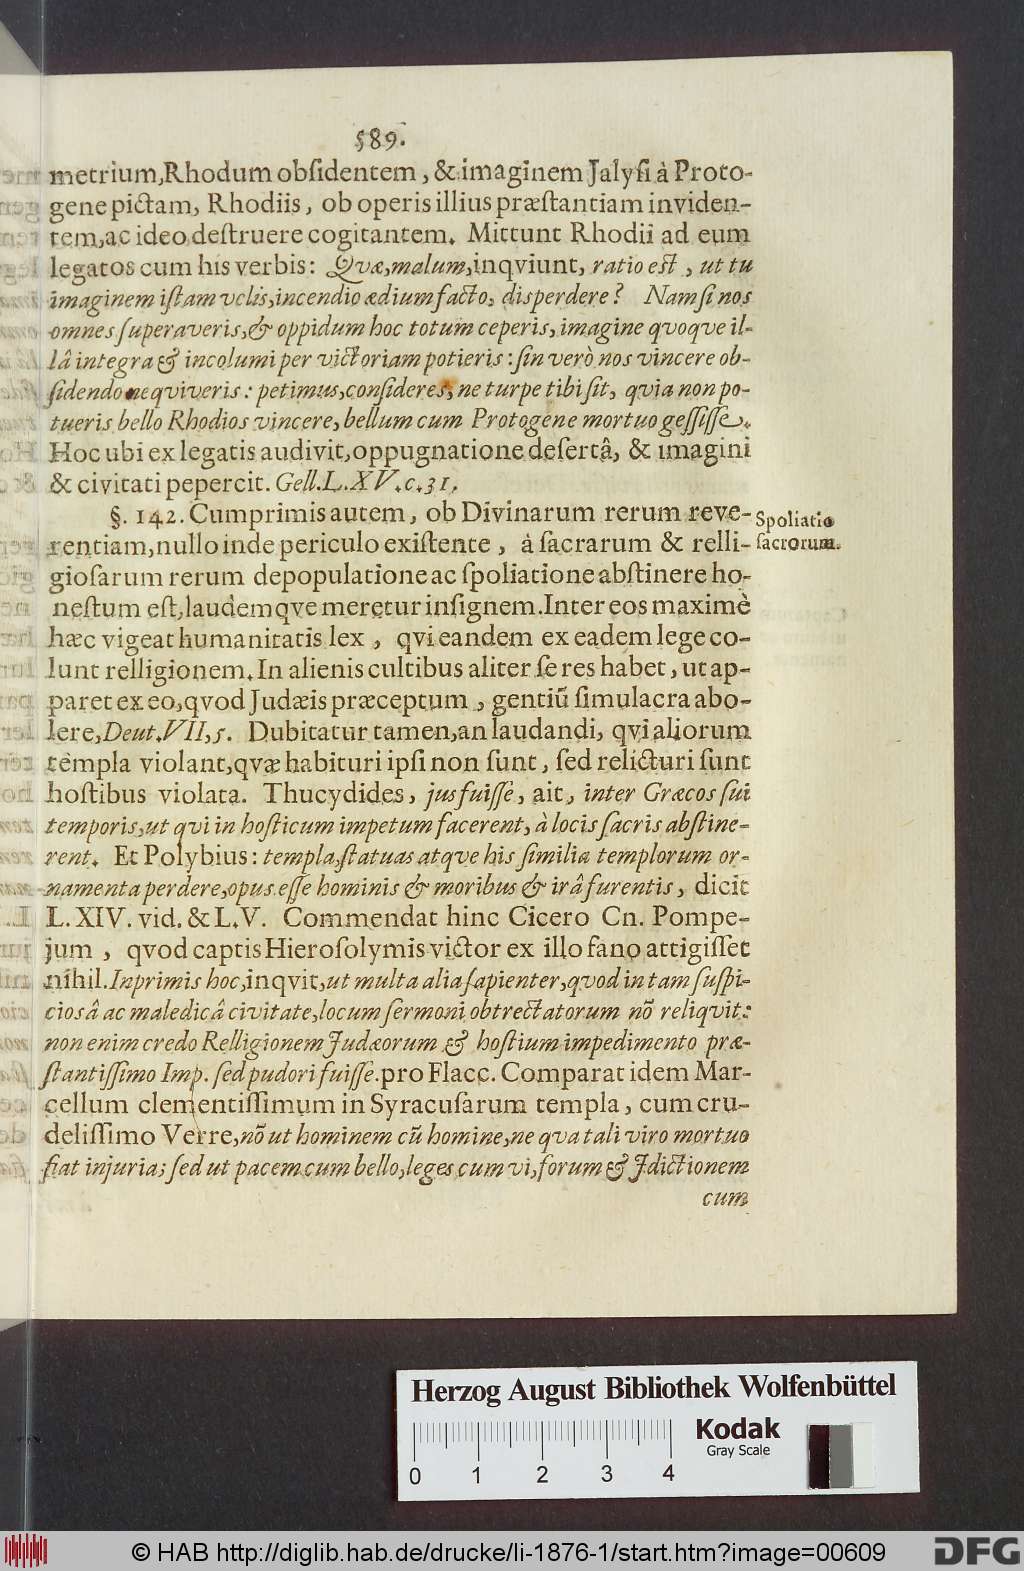 589.
metrium, Rhodum obſidentem, & imaginem Jalyſi à Proto-
gene pictam, Rhodiis, ob operis illius præſtantiam inviden-
tem, ac ideo deſtruere cogitantem. Mittunt Rhodii ad eum
legatos cum his verbis: Qvæ, malum, inqviunt, ratio eſt, ut tu
imaginem iſtam velis, incendio ædium facto, disperdere? Nam ſi nos
omnes ſuperaveris, & oppidum hoc totum ceperis, imagine qvoqve il-
lâ integra & incolumi per victoriam potieris: ſin verò nos vincere ob-
ſidendo neqviveris: petimus, conſideres, ne turpe tibi ſit, qvia non po-
tueris bello Rhodios vincere, bellum cum Protogene mortuo geſſiſſe.
Hoc ubi ex legatis audivit, oppugnatione deſertâ, & imagini
& civitati pepercit. Gell. L. XV. c. 31.
§. 142. Cumprimis autem, ob Divinarum rerum reve-
rentiam, nullo inde periculo exiſtente, à ſacrarum & relli-
gioſarum rerum depopulatione ac ſpoliatione abſtinere ho-
neſtum eſt, laudemqve meretur inſignem. Inter eos maximè
hæc vigeat humanitatis lex, qvi eandem ex eadem lege co-
lunt relligionem. In alienis cultibus aliter ſe res habet, ut ap-
paret ex eo, qvod Judæis præceptum, gentiũ ſimulacra abo-
lere, Deut. VII, 5. Dubitatur tamen, an laudandi, qvi aliorum
templa violant, qvæ habituri ipſi non ſunt, ſed relicturi ſunt
hoſtibus violata. Thucydides, jus fuiſſe, ait, inter Græcos ſui
temporis, ut qvi in hoſticum impetum facerent, à locis ſacris abſtine-
rent. Et Polybius: templa, ſtatuas atqve his ſimilia templorum or-
namenta perdere, opus eſſe hominis & moribus & irâ furentis, dicit
L. XIV. vid. & L. V. Commendat hinc Cicero Cn. Pompe-
jum, qvod captis Hieroſolymis victor ex illo fano attigiſſet
nihil. Inprimis hoc, inqvit, ut multa alia ſapienter, qvod in tam ſuſpi-
cioſâ ac maledicâ civitate, locum ſermoni obtrectatorum nõ reliqvit:
non enim credo Relligionem Judæorum & hoſtium impedimento præ-
ſtantiſſimo Imp. ſed pudori fuiſſe. pro Flacc. Comparat idem Mar-
cellum clementiſſimum in Syracuſarum templa, cum cru-
deliſſimo Verre, nõ ut hominem cũ homine, ne qva tali viro mortuo
fiat injuria; ſed ut pacem cum bello, leges cum vi, forum & Jdictionem
cum
Spoliatio
ſacrorum.
Herzog August Bibliothek Wolfenbüttel
Kodak
Gray Scale
0 1 2 3 4
© HAB http://diglib.hab.de/drucke/li-1876-1/start.htm?image=00609
DFG